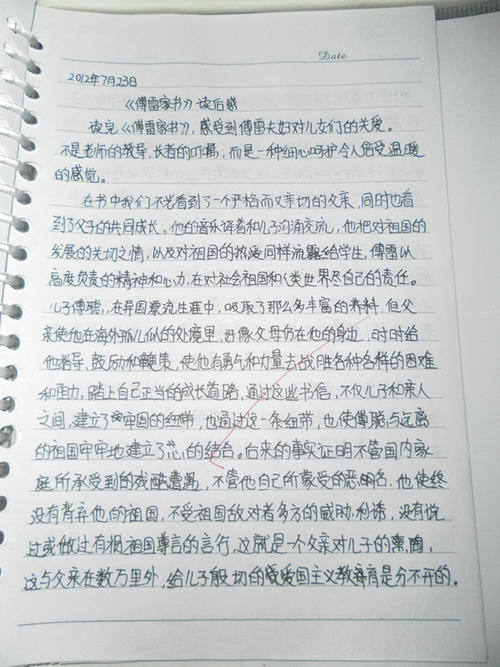 Date
2012年7月23日
《傅雷家书》读后感
读完《傅雷家书》,感受到傅雷夫妇对儿女们的关爱。
不是老师的教导,长者的叮嘱,而是一种细心呵护令人倍受温暖
的感觉。
在书中我们不光看到了一个严格而又亲切的父亲,同时也看
到了父子的共同成长。他的音乐译者和儿子沟通交流,他把对祖国的
发展的关切之情,以及对祖国的热爱同样流露给学生,傅雷以
高度负责的精神和心力,在对社会祖国和人类世界尽自己的责任。
儿子傅聪,在异国漂流生涯中,吸取了那么多丰富的养料,但父
亲使他在海外孤儿似的处境里,好像父母仍在他的身边,时时给
他指导,鼓励和鞭策,使他有勇气和力量去战胜各种各样的困难
和阻力,踏上自己正当的成长道路,通过这些书信,不仅儿子和亲人
之间,建立了牢固的纽带,也通过这一条纽带,也使傅聪与远离
的祖国牢牢地建立了心的结合。后来的事实证明不管国内家
庭所承受到的残酷遭遇,不管他自己所蒙受的恶名,他使终
没有背弃他的祖国,不受祖国敌对者多方的威胁利诱,没有说
过或做过有损祖国尊言的言行,这就是一个父亲对儿子的熏陶,
这与父亲在数万里外,给儿子殷切的爱国主义教育是分不开的。